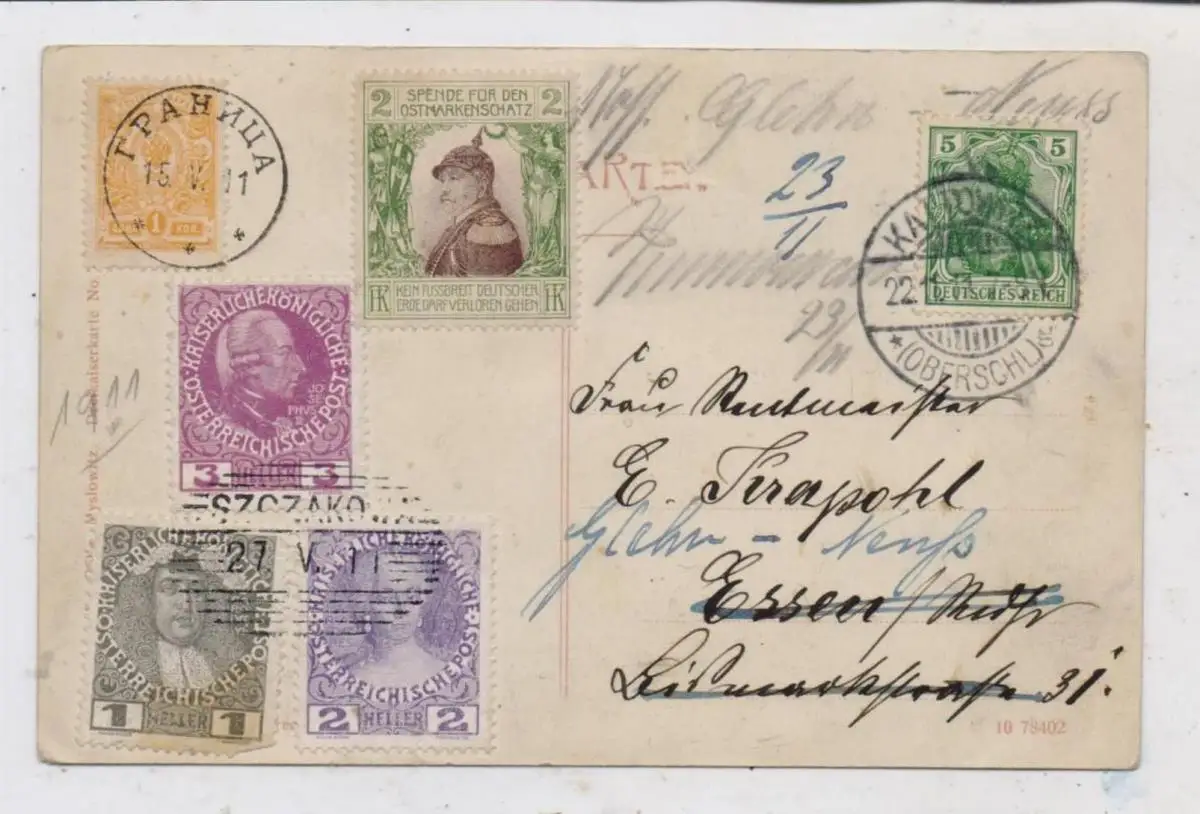 ГРАНИЦА
15. V. 11
1 КОП.
2 SPENDE FÜR DEN OSTMARKENSCHATZ 2
1K KEIN FUSSBREIT DEUTSCHER ERDE DARF VERLOREN GEHEN 1K
Glehn – Neuss
ARTE.
23/11
23/11
5 5
DEUTSCHES REICH
KATTOWITZ
22.11
*(OBERSCHL)
KAISERLICHEKÖNIGLICHE
ÖSTERREICHISCHE POST
JOSEPHUS II
3 HELLER 3
SZCZAKOWA
27 V. 11
KAISERLICHEKÖNIGLICHE
ÖSTERREICHISCHE POST
1 HELLER 1
KAISERLICHEKÖNIGLICHE
ÖSTERREICHISCHE POST
2 HELLER 2
Myslowitz Dreikaiserkarte No.
19 11
Frau Rentmeister
E. Krapohl
Glehn – Neuß
Essen/Ruhr
Bismarkstrasse 31.
10 78402